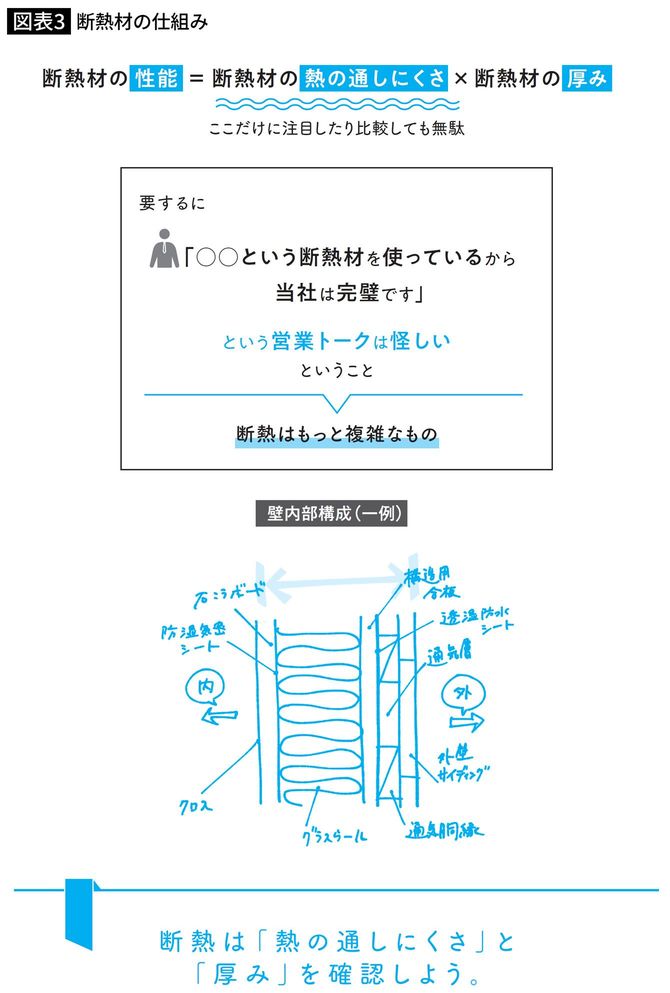 図表3 断熱材の仕組み
断熱材の性能＝断熱材の熱の通しにくさ×断熱材の厚み
ここだけに注目したり比較しても無駄
要するに
「○○という断熱材を使っているから
当社は完璧です」
という営業トークは怪しい
ということ
断熱はもっと複雑なもの
壁内部構成（一例）
構造用
合板
石こうボード
透湿防水
シート
防湿気密
シート
通気層
内
外
外壁
サイディング
クロス
グラスウール
通気胴縁
断熱は「熱の通しにくさ」と
「厚み」を確認しよう。